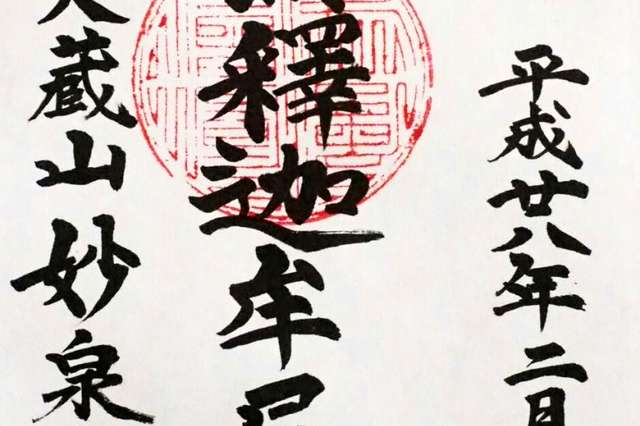 平成廿八年二月
釋迦牟尼
蔵山妙泉